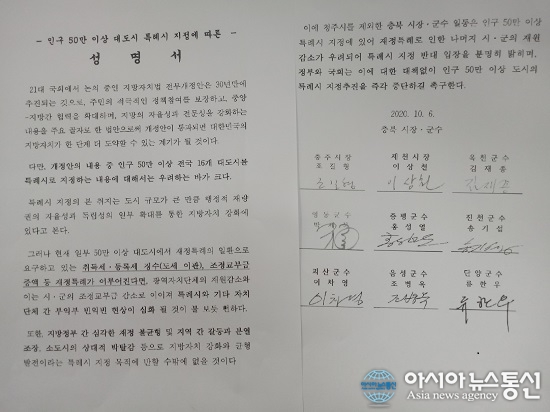 - 인구 50만 이상 대도시 특례시 지정에 따른 -
성 명 서
21대 국회에서 논의 중인 지방자치법 전부개정안은 30년만에
추진되는 것으로, 주민의 적극적인 정책참여를 보장하고, 중앙
-지방간 협력을 확대하며, 지방의 자율성과 전문성을 강화하는
내용을 주요 골자로 한 법안으로써 개정안이 통과되면 대한민국의
지방자치가 한 단계 더 도약할 수 있는 계기가 될 것이다.
다만, 개정안의 내용 중 인구 50만 이상 전국 16개 대도시를
특례시로 지정하는 내용에 대해서는 우려하는 바가 크다.
특례시 지정의 본 취지는 도시 규모가 큰 만큼 행정적 재량
권의 자율성과 독립성의 일부 확대를 통한 지방자치 강화에
있다고 본다.
그러나 현재 일부 50만 이상 대도시에서 재정특례의 일환으로
요구하고 있는 취득세·등록세 징수(도세 이관), 조정교부금
증액 등 재정특례가 이루어진다면, 광역자치단체의 재원감소와
이는 시·군의 조정교부금 감소로 이어져 특례시와 기타 자치
단체 간 부익부 빈익빈 현상이 심화 될 것이 불 보듯 뻔하다.
또한, 지방정부 간 심각한 재정 불균형 및 지역 간 갈등과 분열
조장, 소도시의 상대적 박탈감 등으로 지방자치 강화와 균형
발전이라는 특례시 지정 목적에 반할 수밖에 없을 것이다.
이에 청주시를 제외한 충북 시장·군수 일동은 인구 50만 이상
특례시 지정에 있어 재정특례로 인한 나머지 시·군의 재원
감소가 우려되어 특례시 지정 반대 입장을 분명히 밝히며,
정부와 국회는 이에 대한 대책없이 인구 50만 이상 도시의
특례시 지정추진을 즉각 중단하길 촉구한다.
2020. 10. 6.
충북 시장·군수
충주시장 제천시장 옥천군수
조길형 이상천 김재종
조길형 이상천 김재종
영동군수 증평군수 진천군수
홍성열 송기섭
괴산군수 음성군수 단양군수
이차영 조병옥 류한우
이차영 조병옥 류한우
아시아뉴스통신
Asia news agency